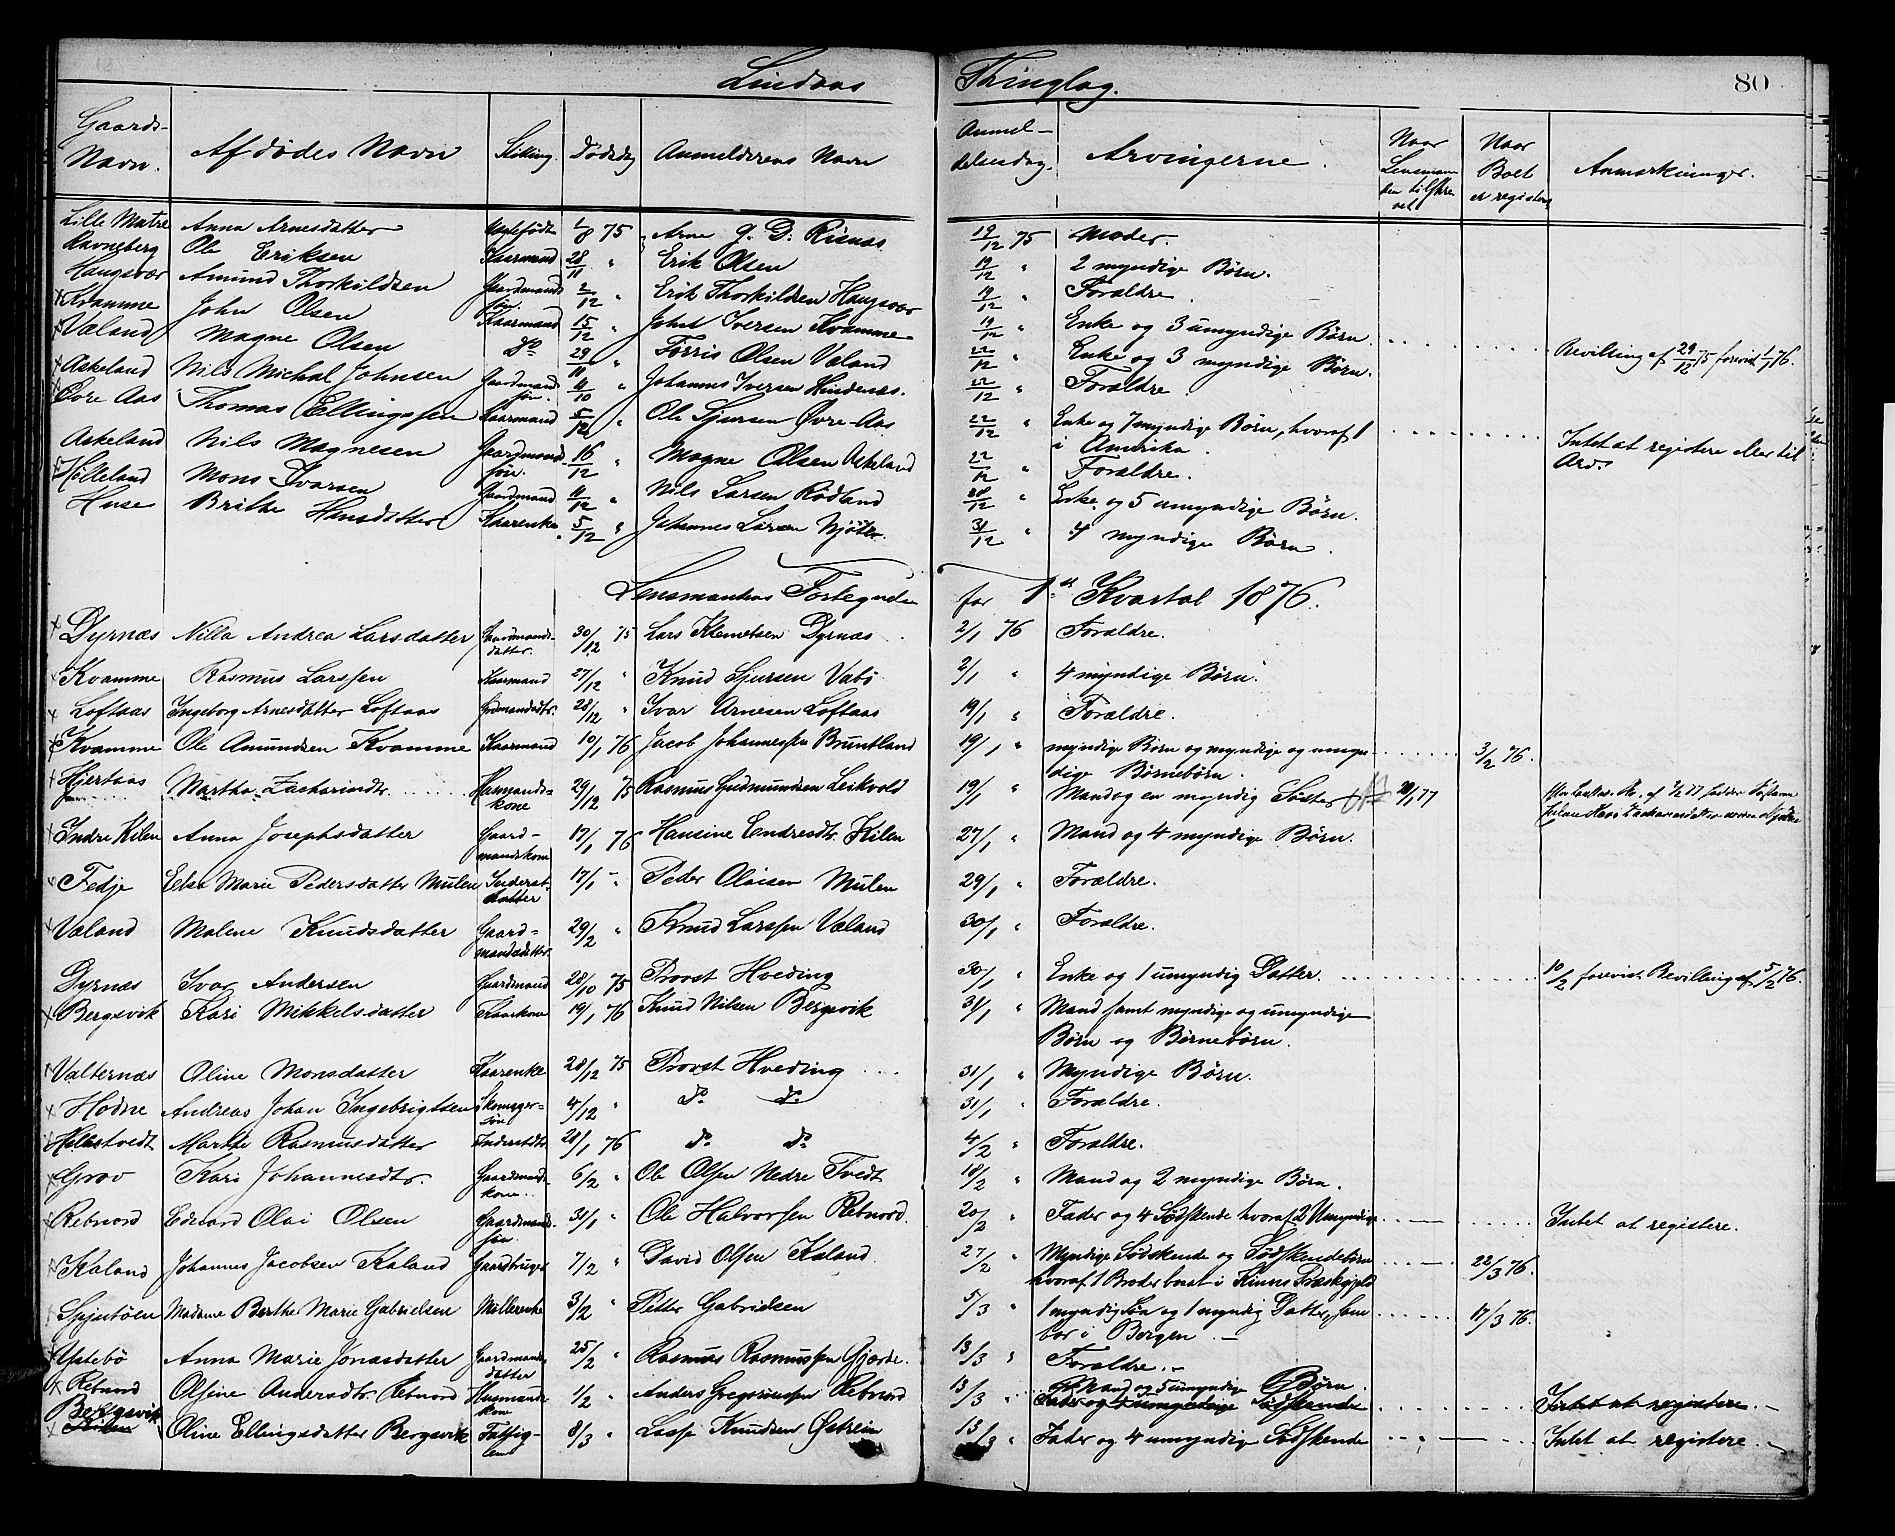 Lindaas Thinglag. 80
Gaards-Navn. Afdødes Navn Stilling. Dødsdag Anmelderens Navn Anmeldelsesdag. Arvingerne. Naar Lensmanden tilskrevet Naar Boet er registeret Anmærkninger.
Lille Matre Anna Arnesdatter 1/8 75 Arne G. D. Risnæs 19/12 75 Moder.
Ravneberg Ole Eriksen Kaarmand 28/11 " Erik Olsen 19/12 " 2 myndige Børn.
Haugsvær Amund Thorkildsen Gaardmands søn. 2/12 " Erik Thorkildsen Haugsvær 19/12 " Forældre.
x Kvamme John Olsen Kaarmand 15/12 " John Iversen Kvamme 19/12 " Enke og 3 umyndige Børn.
x Væland Magne Olsen do 29/11 " Førris Olsen Væland 22/12 " Enke og 3 myndige Børn. Bevilling af 29/12 75 forevist 1/1 76.
x Askeland Nils Michal Johnsen Gaardmands søn. 11/10 " Johannes Iversen Hindenæs. 22/12 " Forældre.
x Øvre Aas Thomas Ellingssen Kaarmand 5/12 " Ole Sjursen Øvre-Aas 22/12 " Enke og 7 myndige Børn, hvoraf 1 i Amerika.
Intet at registere eller til Arv.
Askeland Nils Magnesen Gaardmands søn. 16/12 " Magne Olsen Askeland 22/12 " Forældre.
x Hilleland Mons Ivarsen Gaardmand 11/12 " Nils Larsen Rødland 28/12 " Enke og 5 umyndige Børn.
Huse Brithe Hansdatter Kaarenke. 5/12 " Johannes Larsen Njøten. 31/12 " 4 myndige Børn.
Lensmandens Fortegnelse for 1ste Kvartal 1876.
x Dyrnæs Nilla Andrea Larsdatter Gaardmands-datter. 30/12 75 Lars Klemetsen Dyrnæs 2/1 76 Forældre.
x Kvamme Rasmus Larssen Kaarmand 27/12 " Knud Sjursen Vabø 2/1 " 4 myndige Børn.
x Loftaas Ingeborg Arnesdatter Loftaas Grdmandsdtr. 28/12 " Ivar Arnesen Loftaas 19/1 " Forældre.
x Kvamme Ole Amundsen Kvamme Kaarmand 10/1 76 Jacob Johannessen Bruntland 19/1 " myndige Børn og myndige og umyndige Børnebørn. 3/2 76.
x Hjertaas Martha Zachariasdtr. Husmands-kone 29/12 75 Rasmus Gudmundsen Leikvold 19/1 " Mand og en myndig Søster 29/1 77
x Indre Kilen Anna Josephsdatter Gaard-mandskone 17/1 76 Hansine Endresdtr. Kilen 27/1 " Mand og 4 myndige Børn.
x Fedje Else Marie Pedersdatter Mulen Inderst-datter 17/1 " Peder Olaisen Mulen 29/1 " Forældre.
x Væland Malene Knudsdatter Gaard-mandsdatter. 29/2 " Knud Larssen Væland 30/1 " Forældre.
Dyrnæs Ivar Andersen Gaardmand 28/10 75 Provst Hveding 30/1 " Enke og 1 umyndig Datter. 10/2 forevist Bevilling af 5/2 76.
x Bergsvik Kari Mikkelsdatter Kaarkone 19/1 76 Knud Nilsen Bergsvik 31/1 " Mand samt myndige og umyndige
Børn og Børnebørn.
x Valternæs Oline Monsdatter Kaarenke 28/12 75 Provst Hveding 31/1 " Myndige Børn.
x Hodne Andreas Johan Ingebrigtsen Skomager-søn 4/12 " do do 31/1 " Forældre.
x Helletvedt Marthe Rasmusdatter Inderstdtr. 28/1 76 do do 4/2 " Forældre.
x Grov Kari Johannesdtr. Gaardmands-kone. 6/2 " Ole Olsen Nedre Tvedt 18/2 " Mand og 2 myndige Børn.
x Rebnord Edvard Olai Olsen Gaardmands-søn. 31/1 " Ole Halvorsen Rebnord. 20/2 " Fader og 4 Sødskende hvoraf 2 Umyndige Intet at registere.
x Kaland Johannes Jacobsen Kaland Gaardbruger 7/2 " David Olsen Kaland. 27/2 " Myndige Sødskende og Sødskendebørn
hvoraf 1 Broder boset i Kinns Præstegjeld 22/3 76.
Madame Berthe Marie Gabrielsen 3/2 " Petter Gabrielsen 5/3 " 1 myndig Søn og 1 myndig Datter, som
bor i Bergen. 17/3 76.
x Ystebø Anna Marie Jonasdatter Gaardmands datter 25/2 " Rasmus Rasmussen Gjerde. 13/3 " Forældre.
x Rebnord Olsine Andersdtr. Rebnord Husmands kone 1/2 " Anders Gregoriussen Rebnord 13/3 " Mand og 5 umyndige Børn.
Fader og 4 umyndige Sødskende Intet at registere.
x Bergsvik Oline Ellingsdatter Bergsvik Fattig-lem 8/3 " Lasse Knudsen Østreim 13/3 " Fader og 4 umyndige Sødskende Intet at registere.